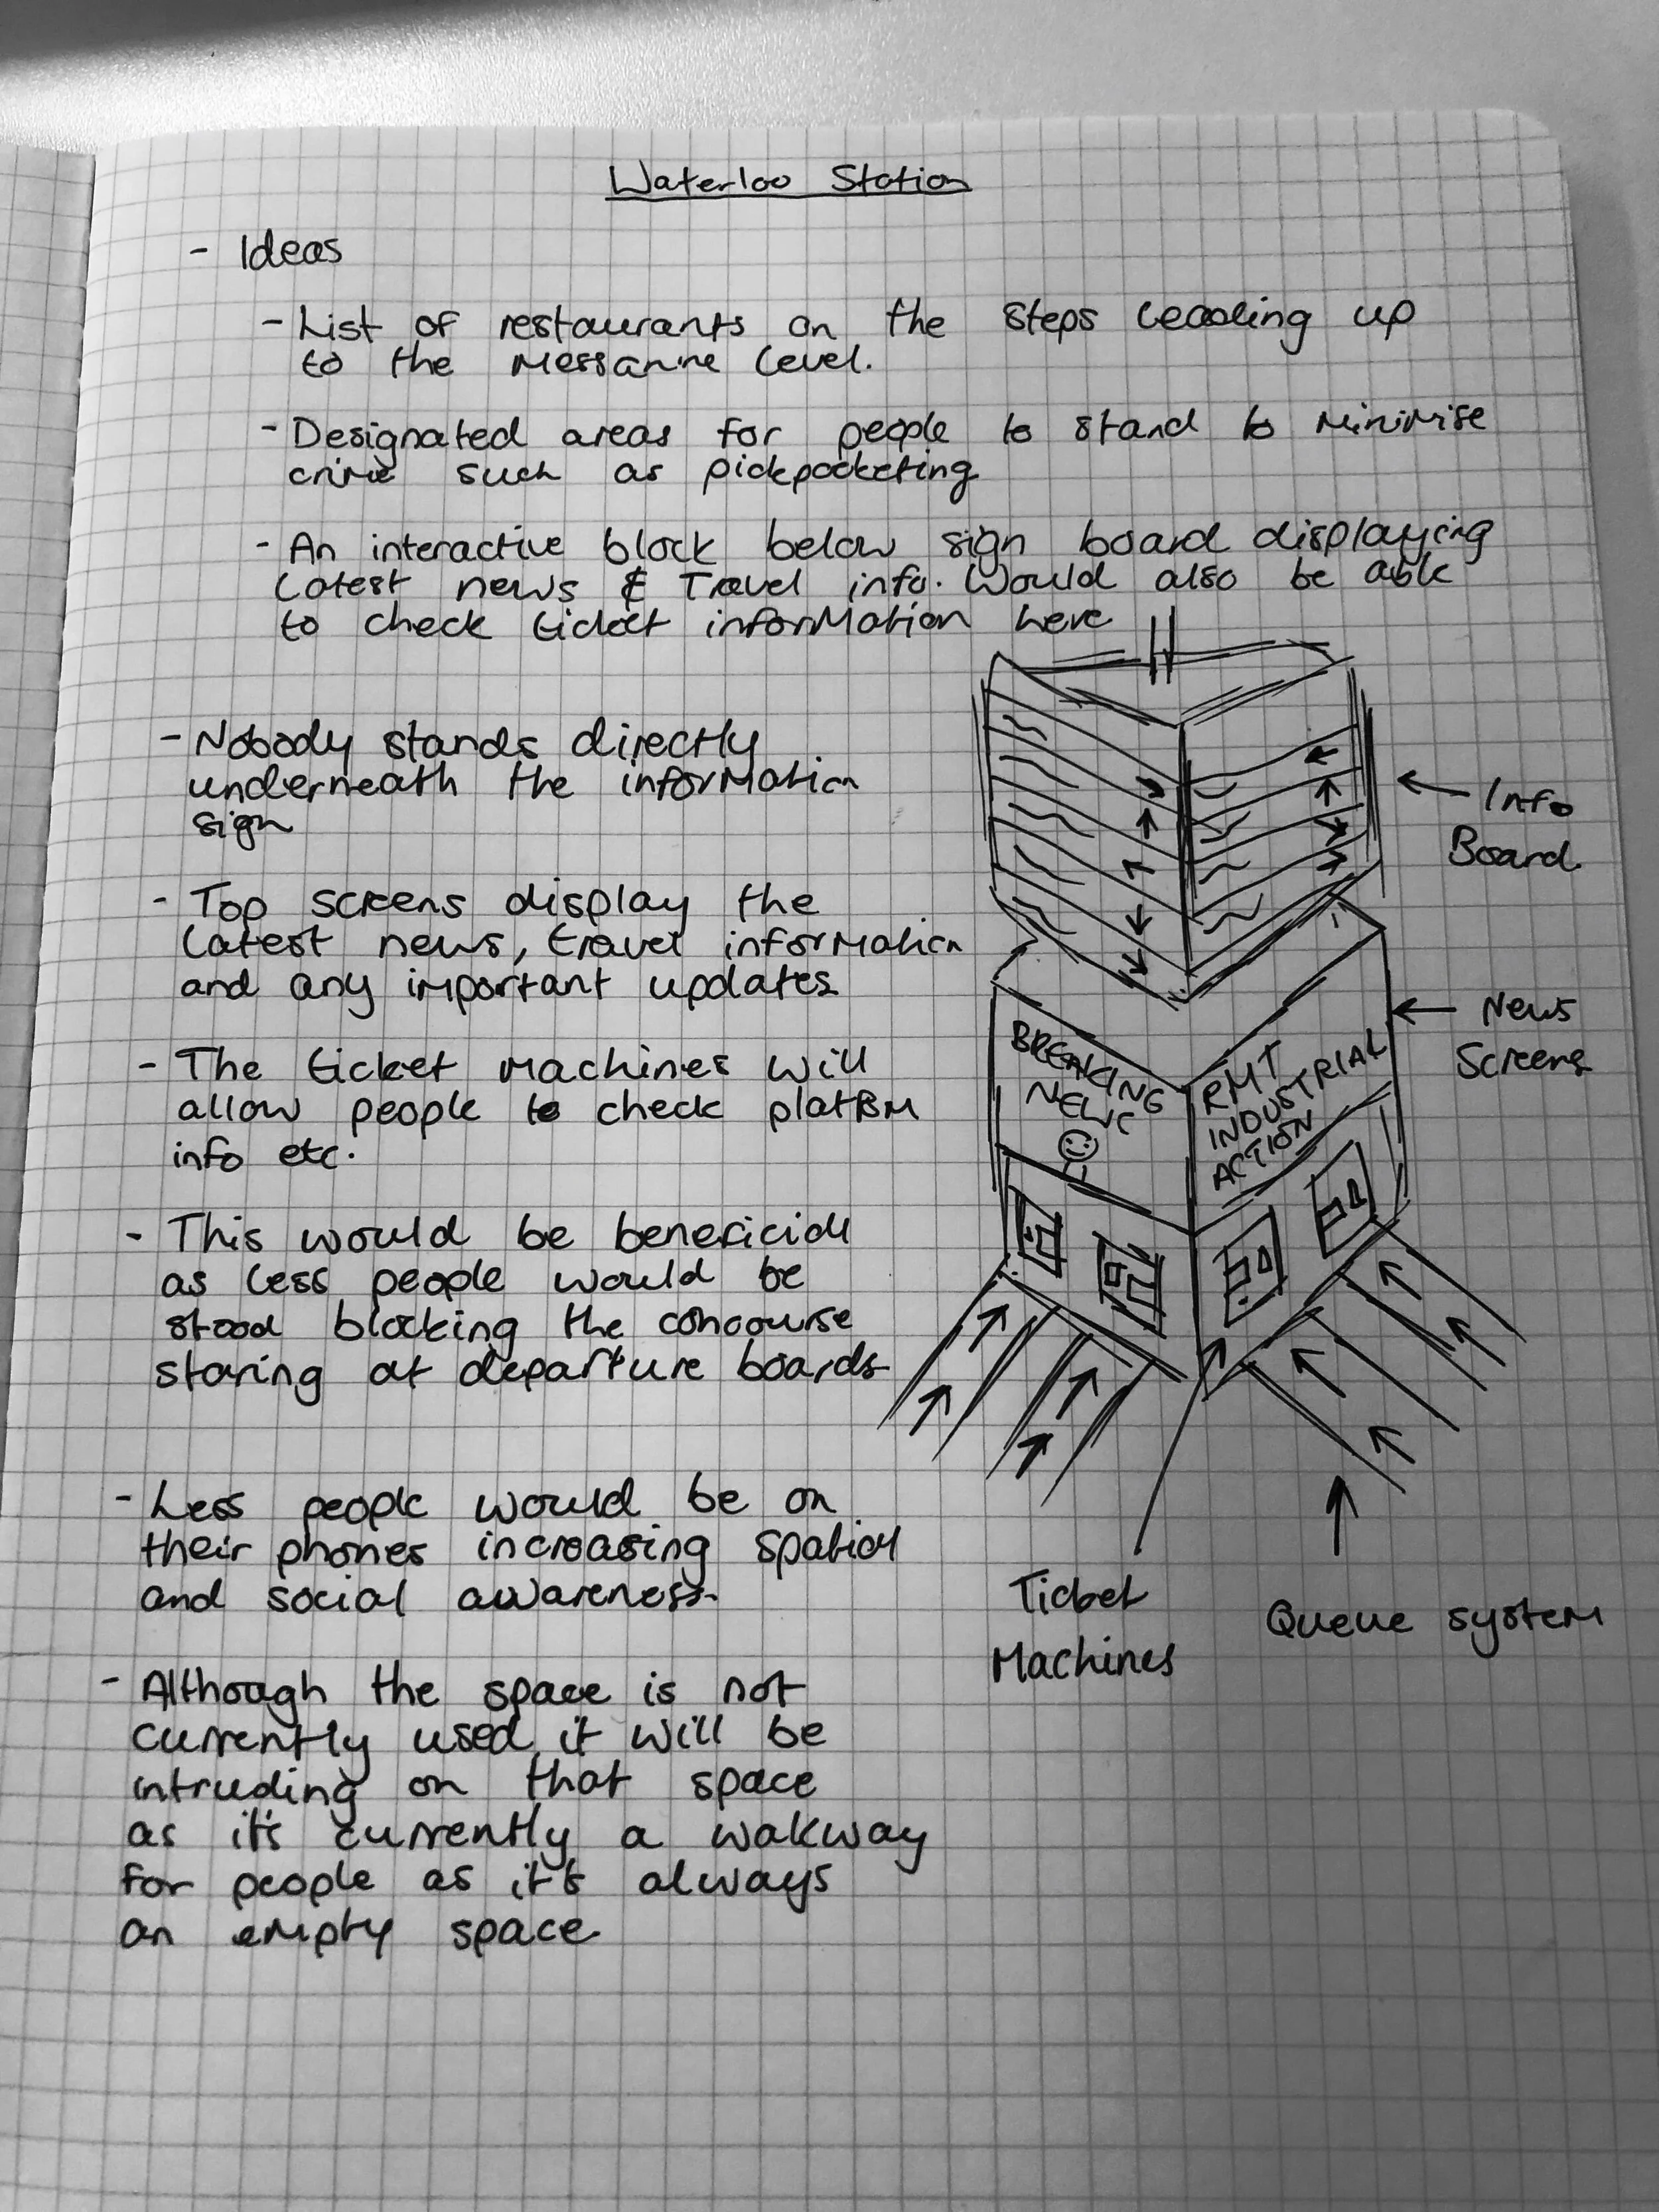 Waterloo Station
- Ideas
- List of restaurants on the steps leading up
to the Messanine level.
- Designated areas for people to stand to minimise
crime such as pickpocketing
- An interactive block below sign board displaying
latest news & Travel info. Would also be able
to check ticket information here
- Nobody stands directly
underneath the information
sign
- Top screens display the
latest news, travel information
and any important updates
- The ticket machines will
allow people to check platform
info etc.
- This would be beneficial
as less people would be
stood blocking the concourse
staring at departure boards
- Less people would be on
their phones increasing spatial
and social awareness
- Although the space is not
currently used, it will be
intruding on that space
as it's currently a wakway
for people as it's always
an empty space
Info
Board
News
Screens
BREAKING
NEWS
RMT
INDUSTRIAL
ACTION
Ticket
Machines
Queue system